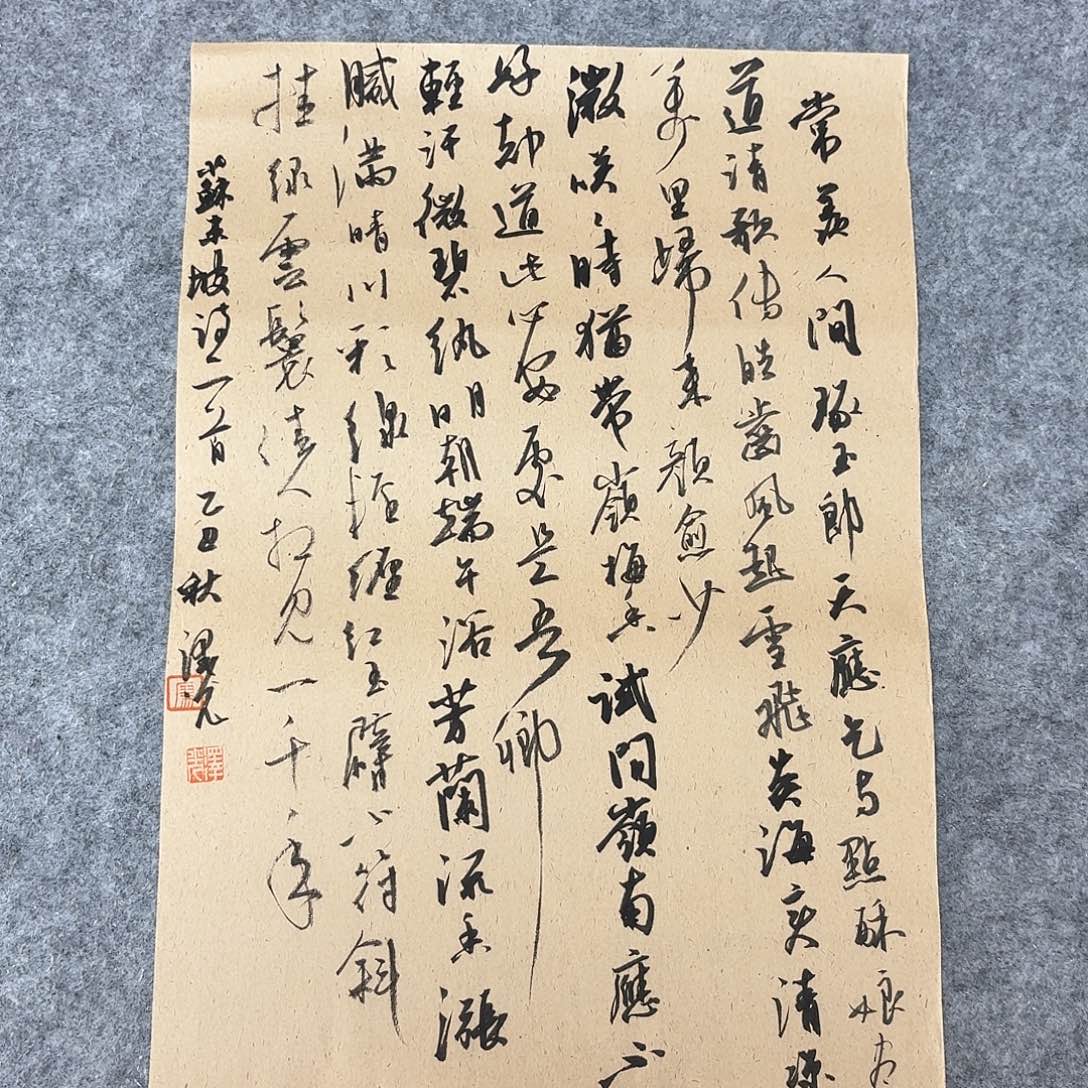 常羨人間琢玉郎天應乞与點酥娘尽
道清歌传皓齒風起雪飛炎海变清涼
萬里歸来顔愈少
微咲〻時猶帶嶺梅香試問嶺南應不
好却道此心安處是吾鄉
輕汗微碧紈明朝端午浴芳蘭流香漲
膩滿晴川彩線輕纏紅玉臂小符斜
挂綠雲鬟佳人相見一千年
蘇東坡詩二首 乙丑秋